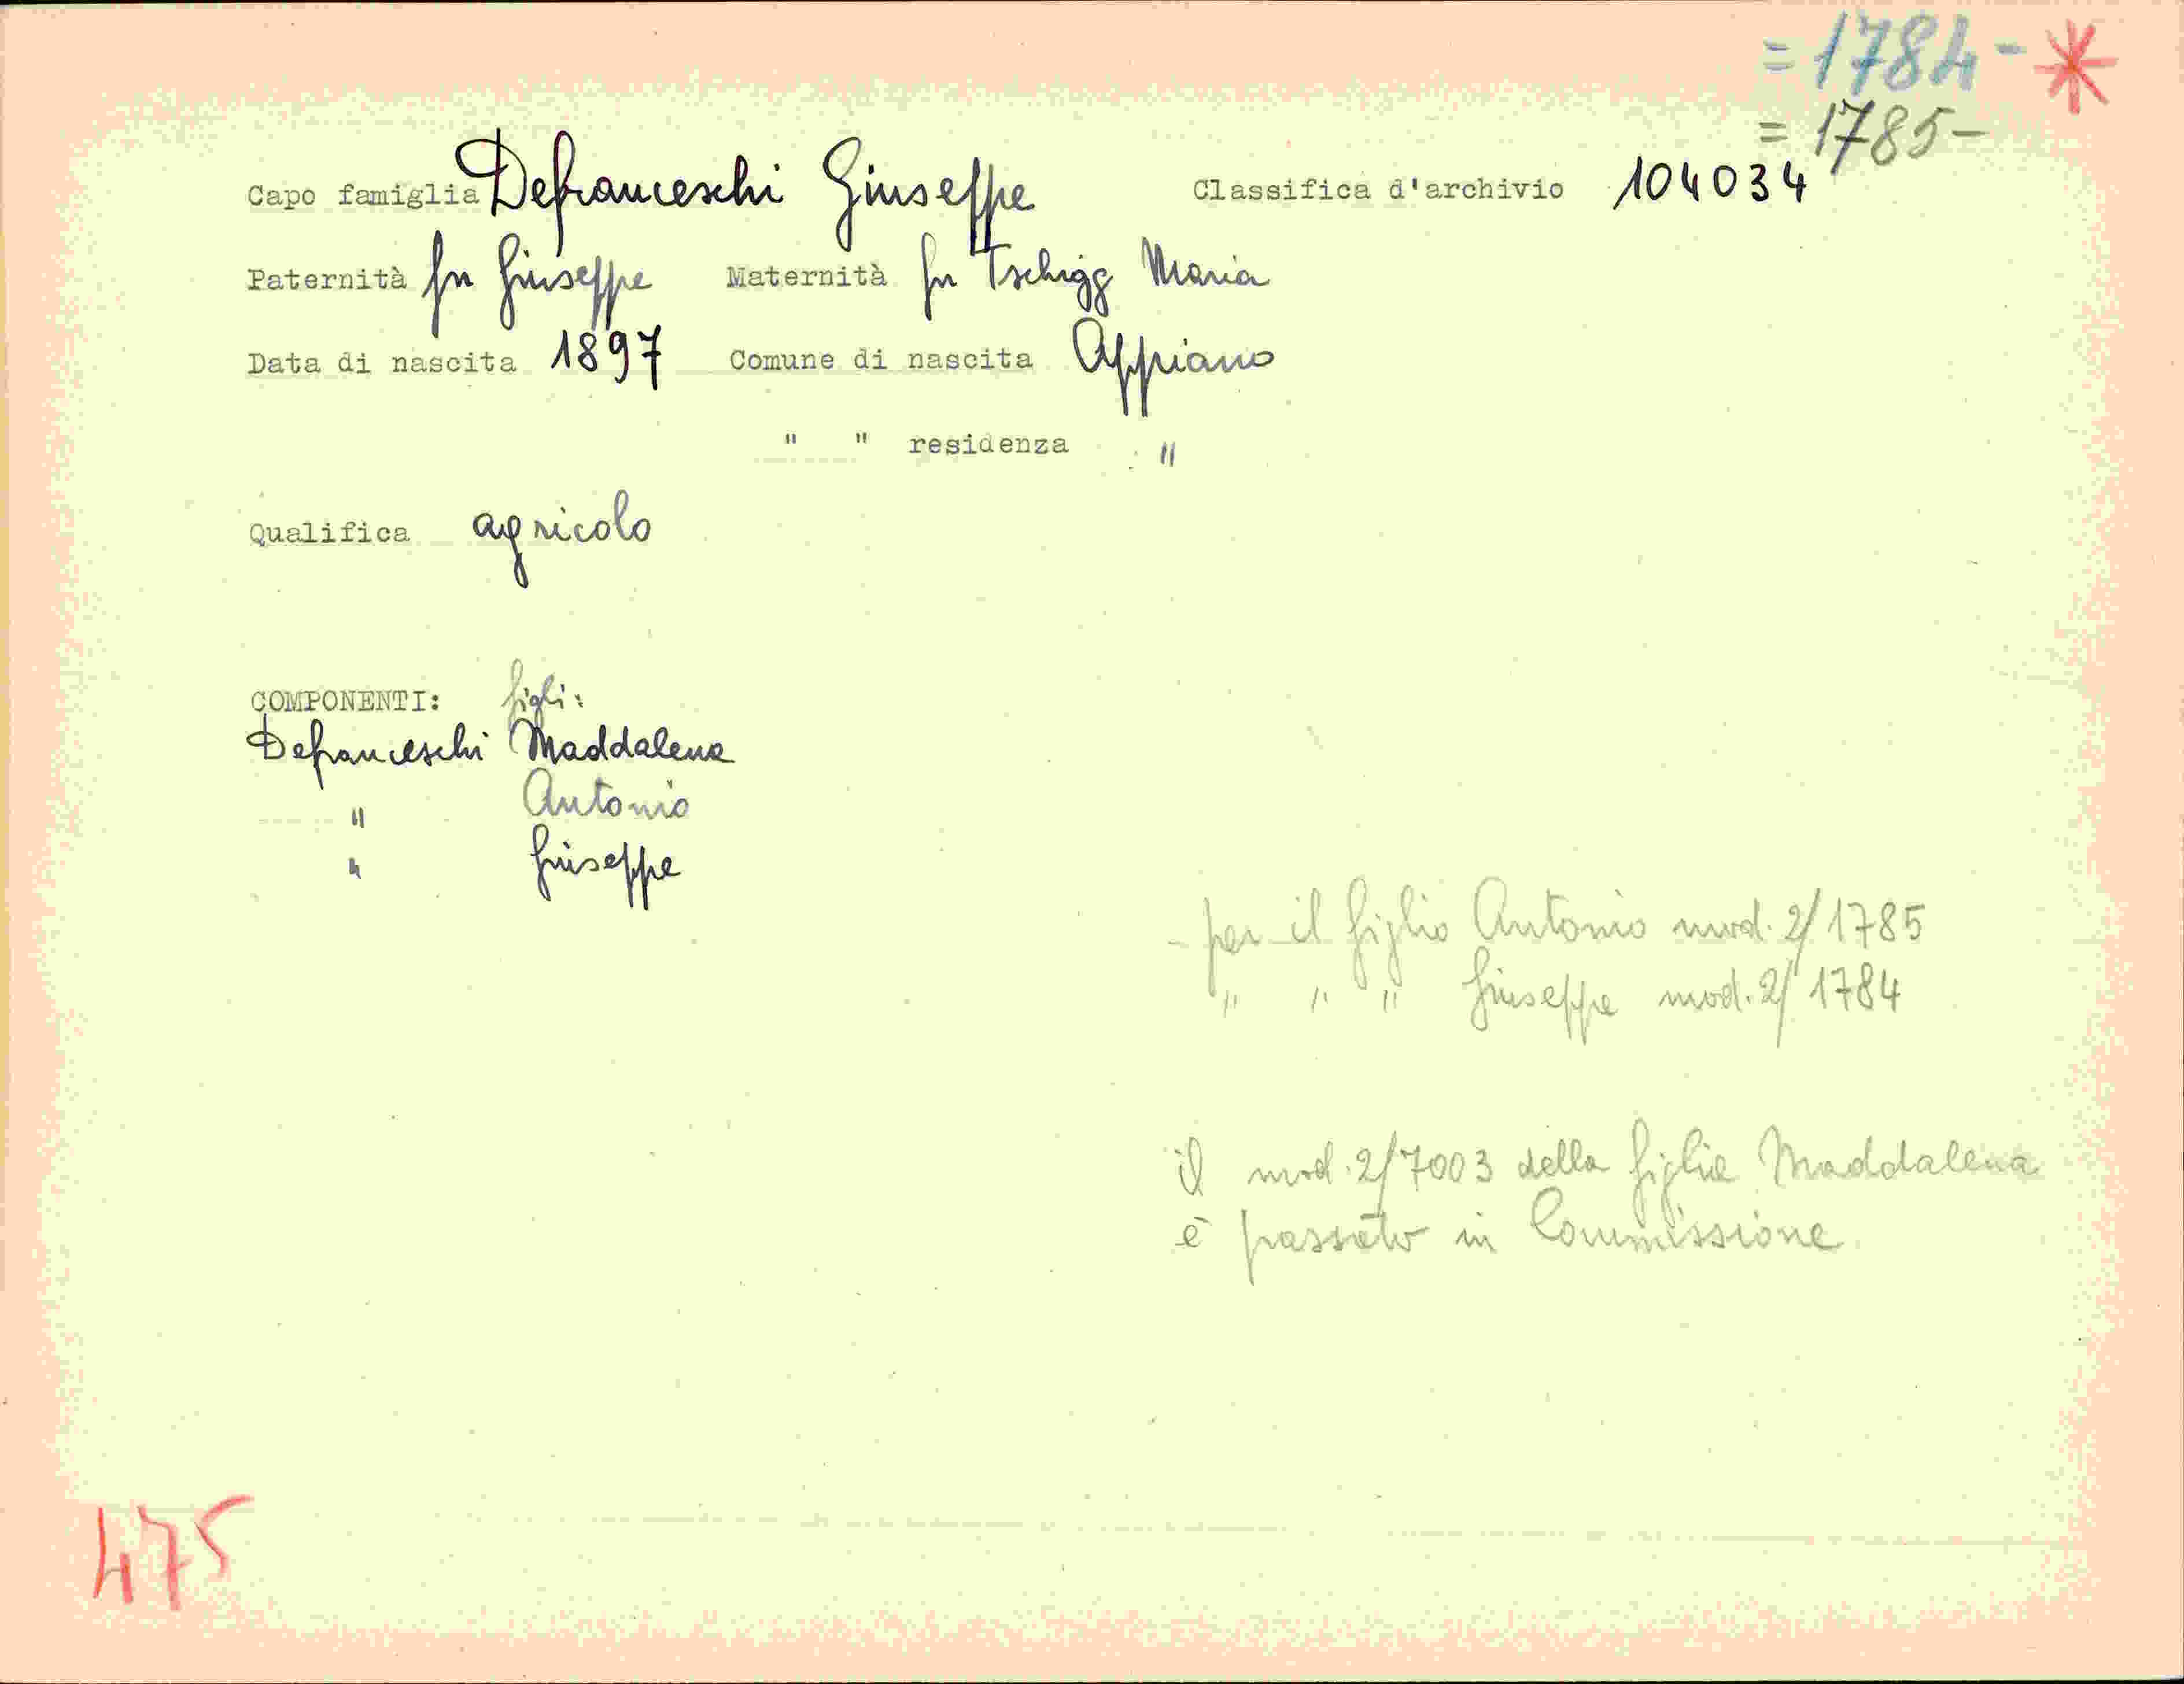 = 1784 - *
= 1785 -
Capo famiglia Defranceschi Giuseppe Classifica d'archivio 104034
Paternità fu Giuseppe Maternità fu Tschigg Maria
Data di nascita 1897 Comune di nascita Appiano
" " residenza "
Qualifica agricolo
COMPONENTI: figli:
Defranceschi Maddalena
" Antonio
" Giuseppe
- per il figlio Antonio mod. 2/1785
" " " Giuseppe mod. 2/1784
il mod. 2/7003 della figlia Maddalena
è passato in Commissione
475